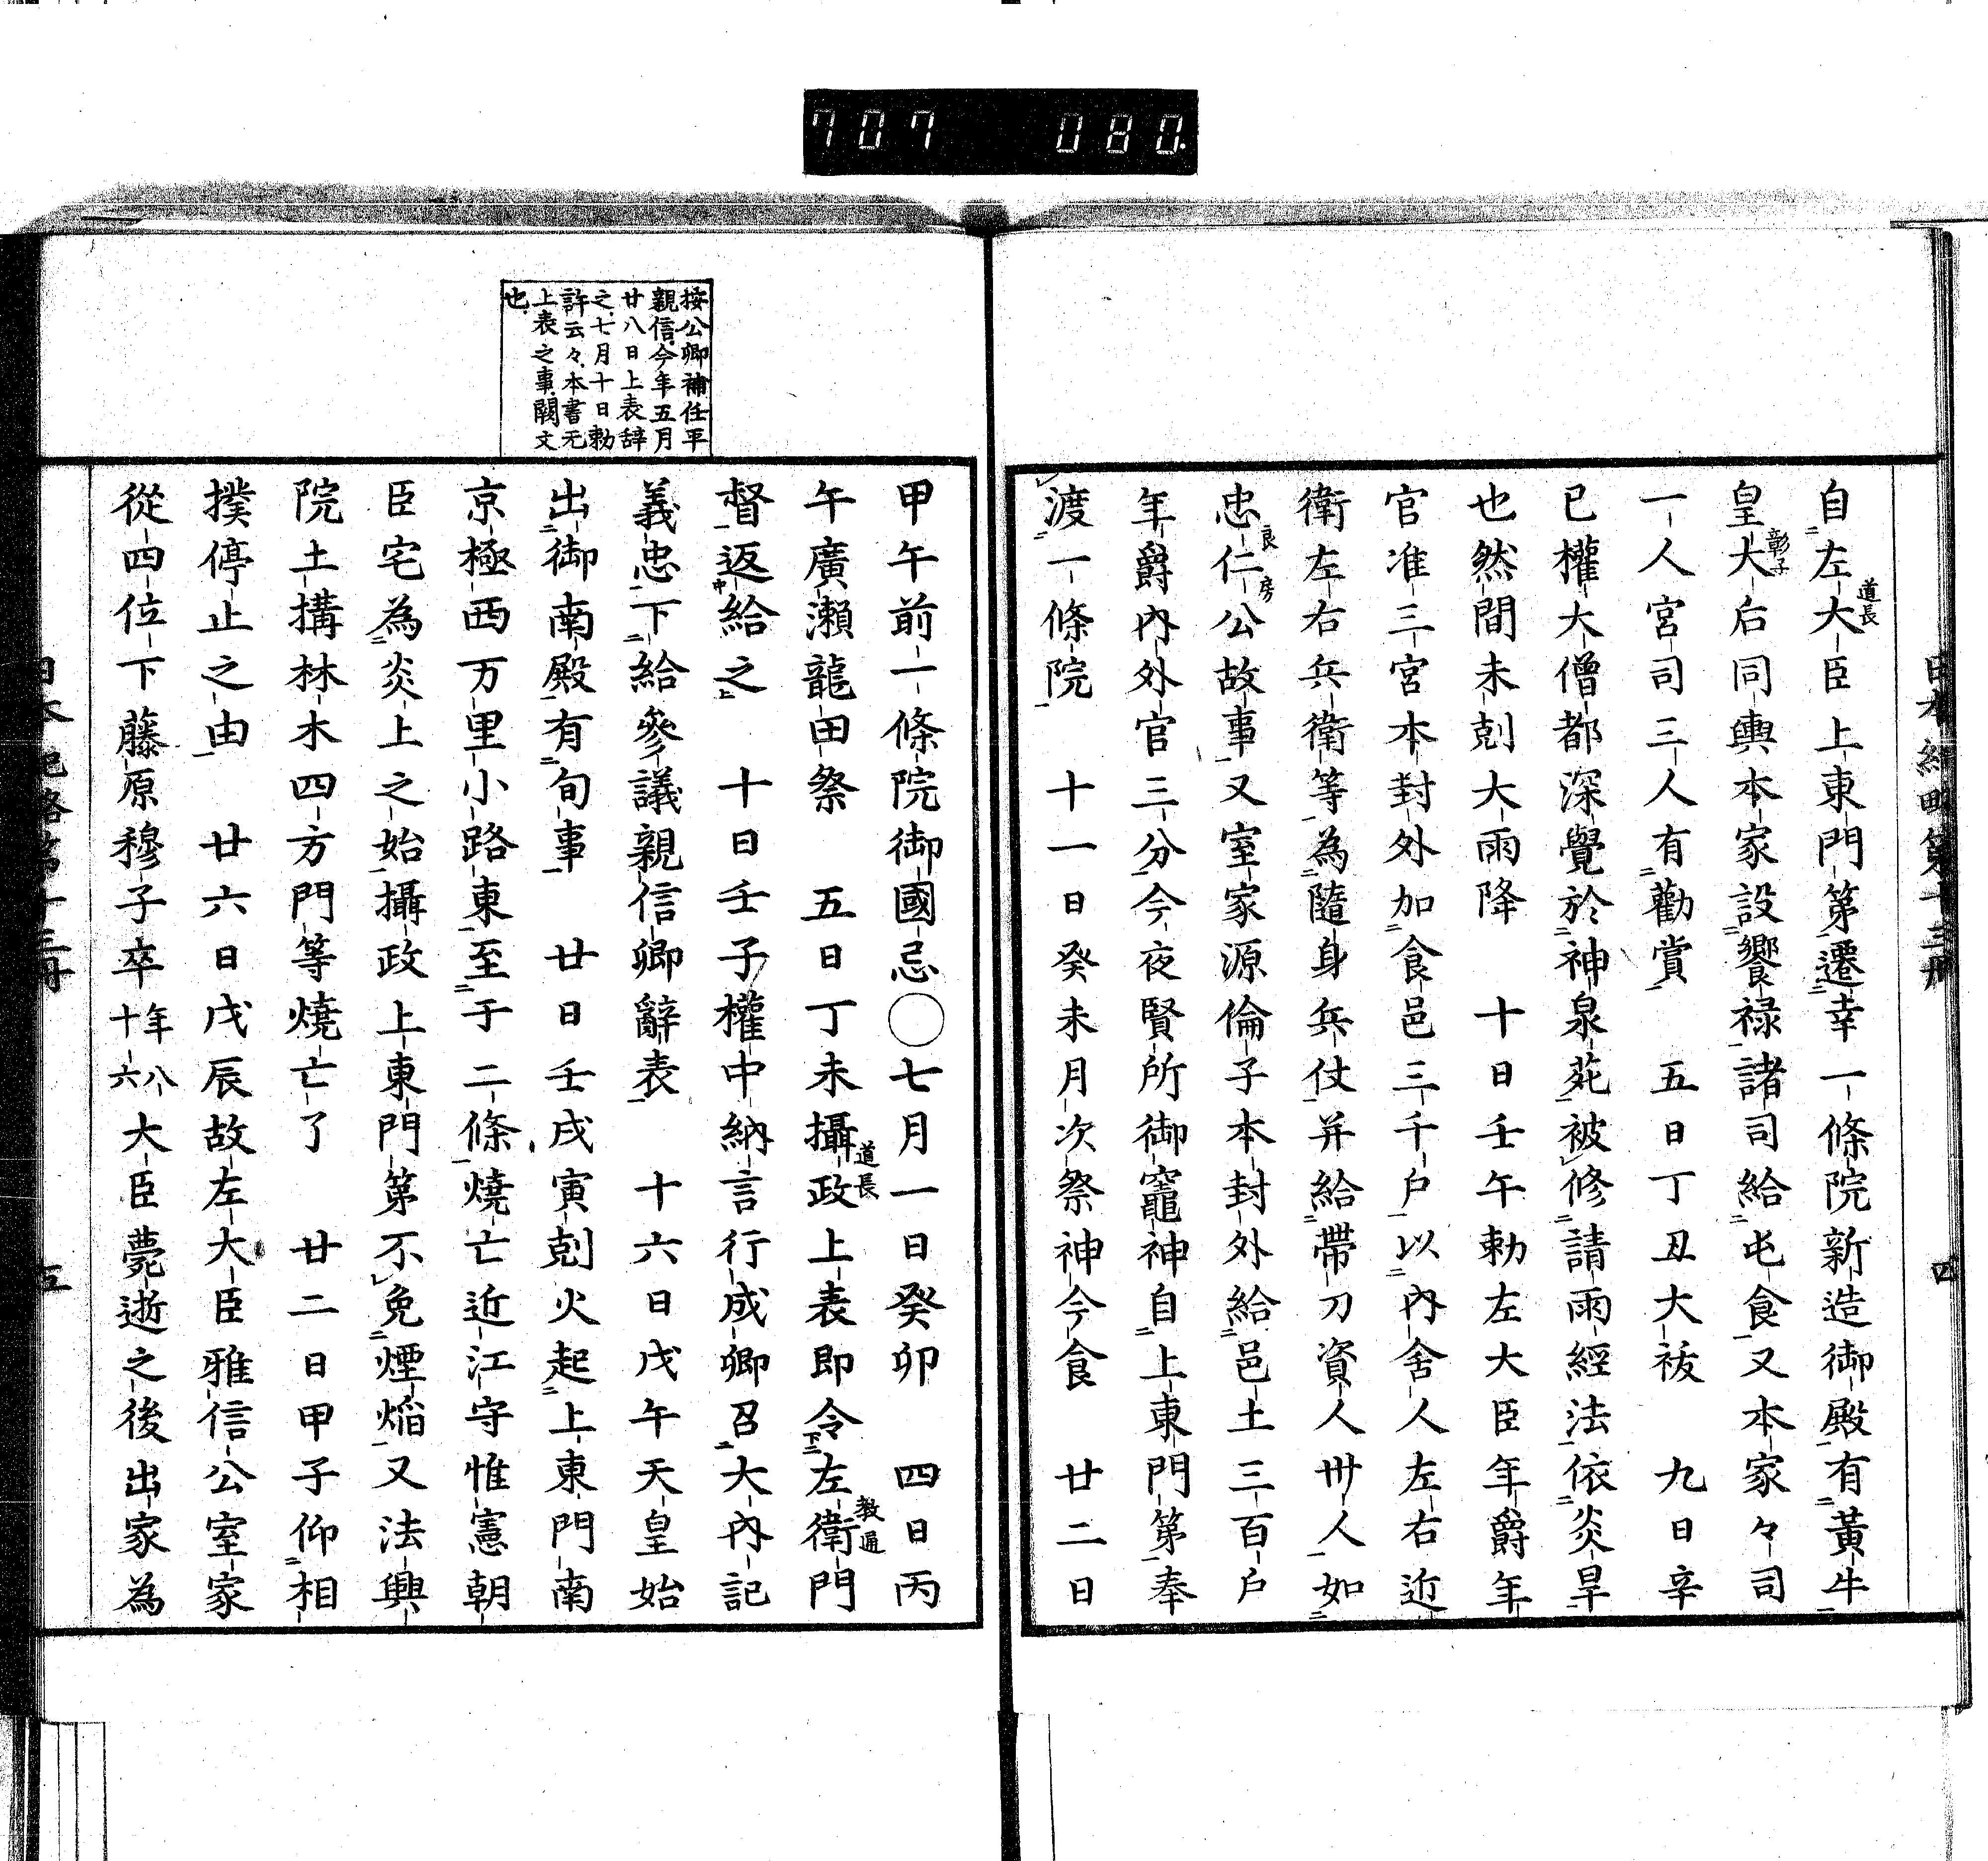 707 080.
日本紀略第十三册 四
自左大臣上東門第遷幸一條院新造御殿有黃牛
道長
皇大后同輿本家設饗祿諸司給屯食又本家々司
彰子
一人宮司三人有勸賞 五日丁丑大祓 九日辛
已權大僧都深覺於神泉苑被修請雨經法依炎旱
也然間未剋大雨降 十日壬午勅左大臣年爵年
官准三宮本封外加食邑三千戶以內舍人左右近
衛左右兵衛等為隨身兵仗并給帶刀資人卅人如
忠仁公故事又室家源倫子本封外給邑土三百戶
良房
年爵內外官三分今夜賢所御竈神自上東門第奉
渡一條院 十一日癸未月次祭神今食 廿二日
按公卿補任平
親信今年五月
廿八日上表辞
之七月十日勅
許云々本書无
上表之事闕文
也
甲午前一條院御國忌〇七月一日癸卯 四日丙
午廣瀨龍田祭 五日丁未攝政上表即令左衛門
道長
教通
督返給之 十日壬子權中納言行成卿召大內記
義忠下給參議親信卿辭表 十六日戊午天皇始
出御南殿有旬事 廿日壬戌寅剋火起上東門南
京極西万里小路東至于二條燒亡近江守惟憲朝
臣宅為炎上之始攝政上東門第不免煙焔又法興
院土搆林木四方門等燒亡了 廿二日甲子仰相
撲停止之由 廿六日戊辰故左大臣雅信公室家
從四位下藤原穆子卒年八十六大臣薨逝之後出家為
日本紀略第十三册 五